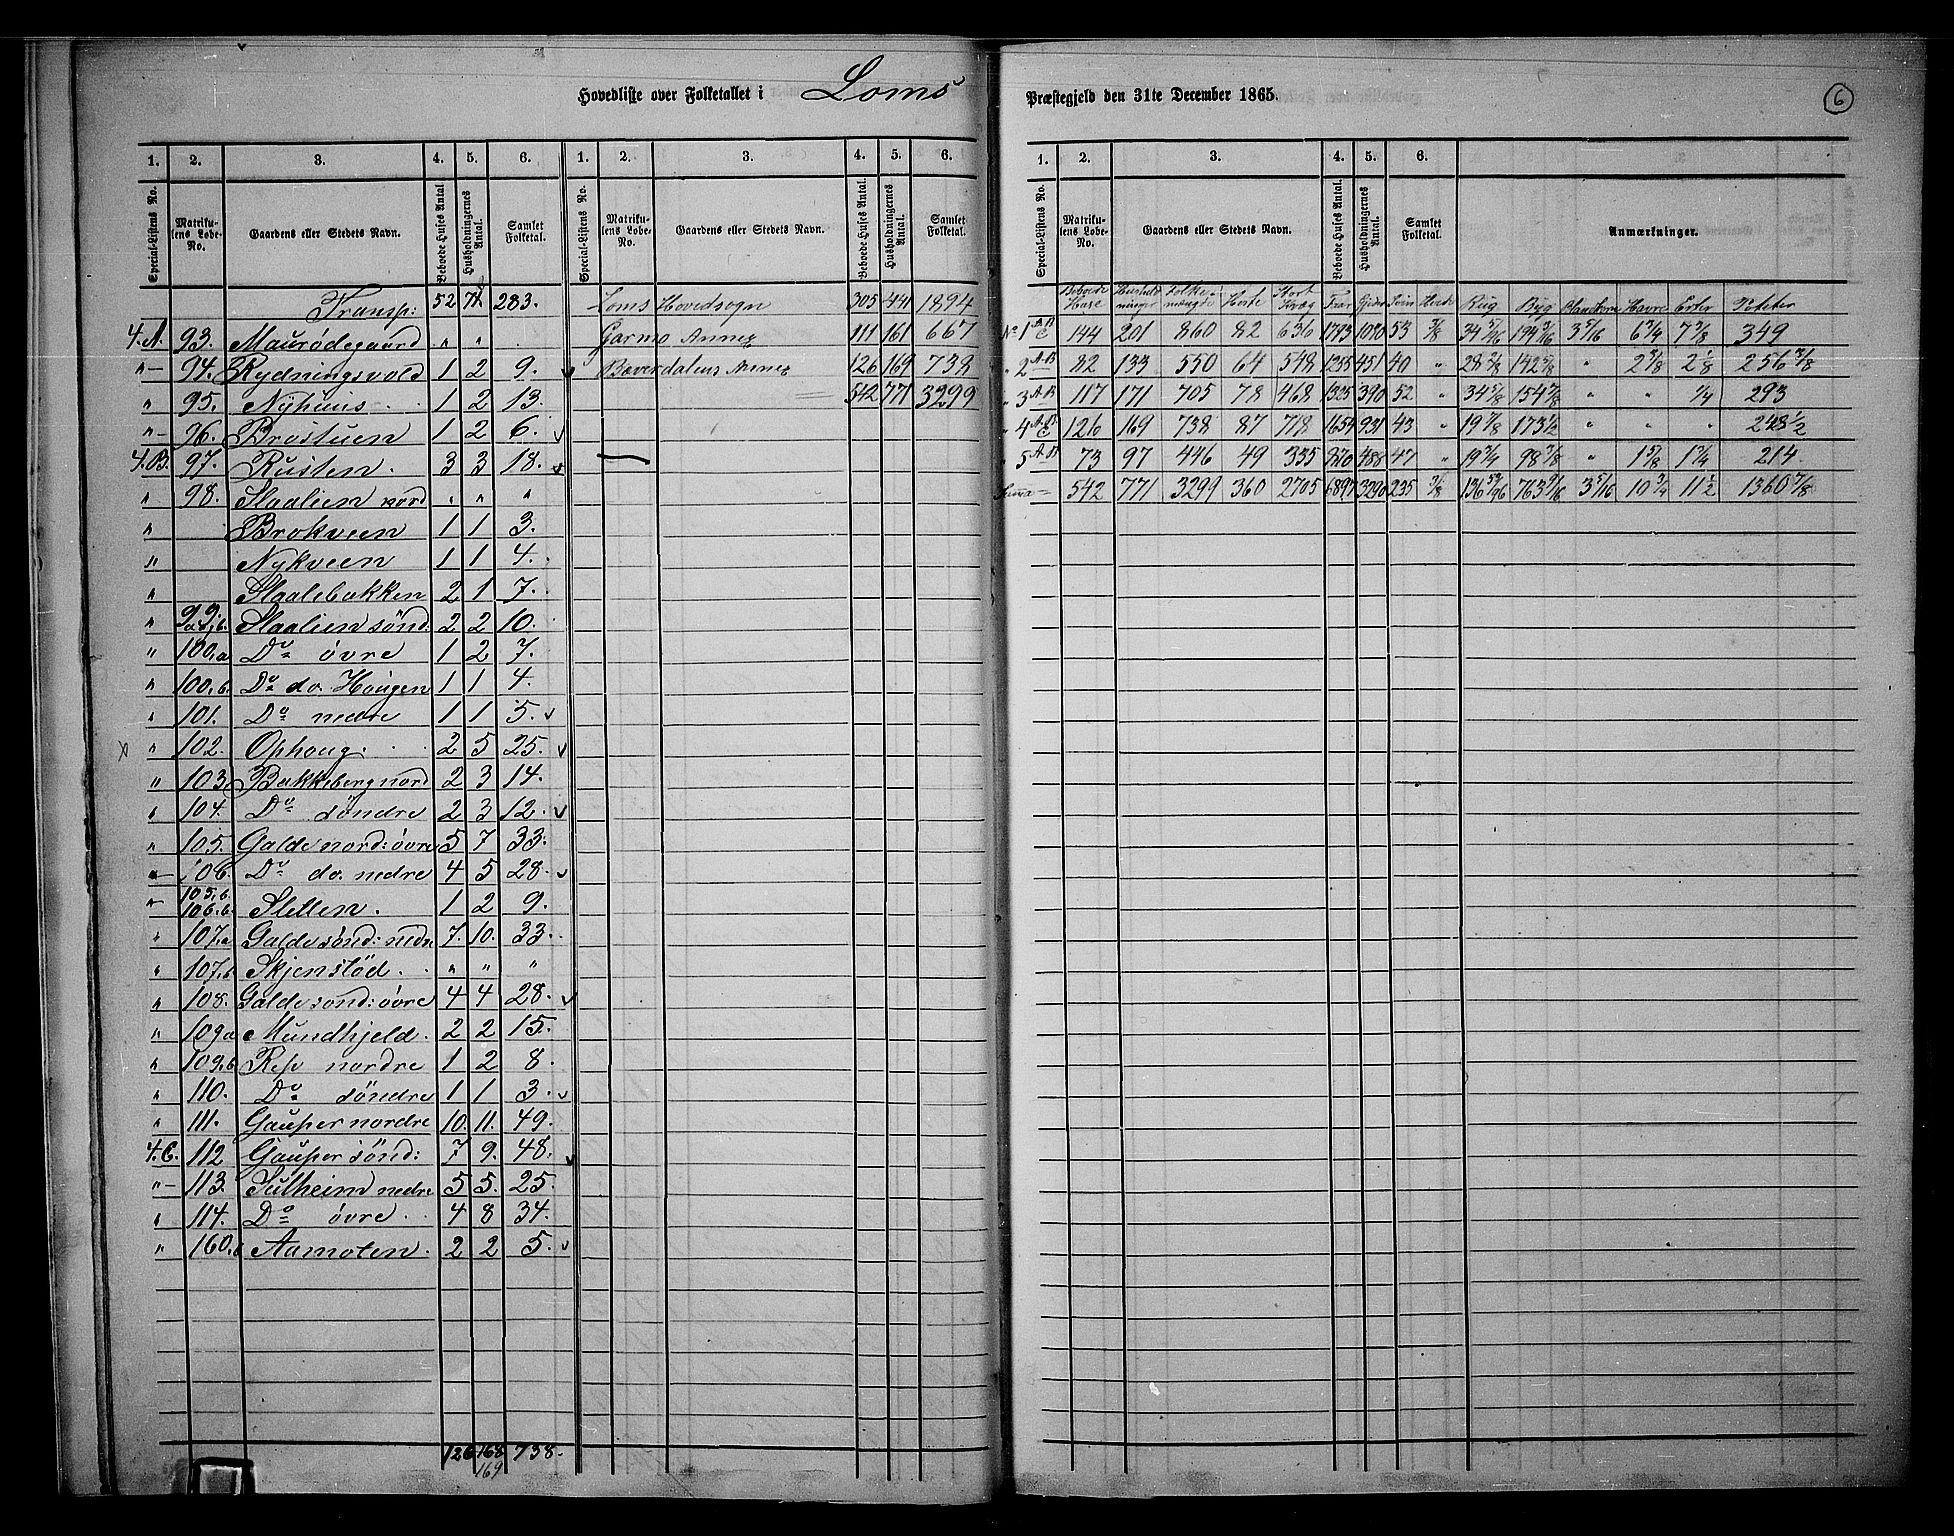 Hovedliste over Folketallet i Loms Præstegjeld den 31te December 1865.
6
1. 2. 3. 4. 5. 6. 1. 2. 3. 4. 5. 6.
Special-Listens No. Matrikulens Løbe-No. Gaardens eller Stedets Navn. Beboede Huses Antal. Husholdningernes Antal. Samlet Folketal. Special-Listens No. Matrikulens Løbe-No. Gaardens eller Stedets Navn. Beboede Huses Antal. Husholdningernes Antal. Samlet Folketal.
Transp: 52 71 283.
4.A. 93. Maurødegaard " " .
"- 94. Rydningsvold 1 2 9.
" 95. Nyhuus 1 2 13.
"- 96. Brøstuen 1 2 6.
4.B. 97. Rusten. 3 3 18.
" 98. Slaalien nord " " "
" Brokveen 1 1 3.
" Nykveen 1 1 4.
" Slaalebakken 2 1 7.
" 99. Slaalien sönd. 2 2 10.
" 100.a Do övre 1 2 7.
" 100.b. Do do. Hougen 1 1 4.
" 101. Do nedre 1 1 5.
" 102. Ophoug. 2 5 25.
" 103. Bakkeberg nord 2 3 14.
" 104. Do söndre 2 3 12.
" 105. Galde nord: övre 5 7 33.
"- 106. Do do. nedre 4 5 28.
" 105.b. 106.b. Sletten. 1 2 9.
" 107.a Galde sönd: nedre 7. 10. 33.
" 107.b Skjenstöd. " " "
" 108. Galde sönd: övre 4 4 28.
" 109a Mundhjeld. 2 2 15.
" 109.b Resp nordre 1 2 8.
" 110. Do söndre 1 1 3.
" 111. Gaupar nordre 10. 11. 49.
4.C. 112 Gaupar sönd: 7 9. 48.
"- 113. Sulheim nedre 5 5. 25.
" 114. Do övre 4 8 34.
" 160.b Aamoten. 2 2 5.
126 168 738.
169
Loms Hovedsogn 305 441 1894
Garmo Annex 111 161 667
Bæverdalens Annex 126 169 738
542 771 3299
1. 2. 3. 4. 5. 6.
Special-Listens No. Matrikulens Løbe-No. Gaardens eller Stedets Navn. Beboede Huses Antal. Husholdningernes Antal. Samlet Folketal. Anmærkninger.
Beboede Huse Folkemængde Heste Stort Kvæg Faar Gjeder Sviin Rug Byg Blandkorn Havre Erter Poteter
No 1 A B C 144 201 860 82 636 1783 1030 53 3/8 34 194 3/16 3 5/16 6 3/4 7 3/8 349
" 2 A-B 82 133 550 64 548 1265 451 40 " 28 2/8 142 5/8 " 2 5/8 2 1/8 256 3/8
" 3 A-B 117 171 705 78 468 1325 390 52 " 34 5/8 154 7/8 " " 1/4 293
" 4 A-B C 126 169 738 87 718 1654 931 43 " 19 7/8 173 1/2 " " " 248 1/2
" 5 A-B 73 97 446 49 335 870 488 47 " 19 3/4 98 3/8 " 1 5/8 1 3/4 214
Suma 542 771 3299 360 2705 6897 3290 235 3/8 136 763 9/16 3 5/16 10 3/4 11 1/2 1360 7/8